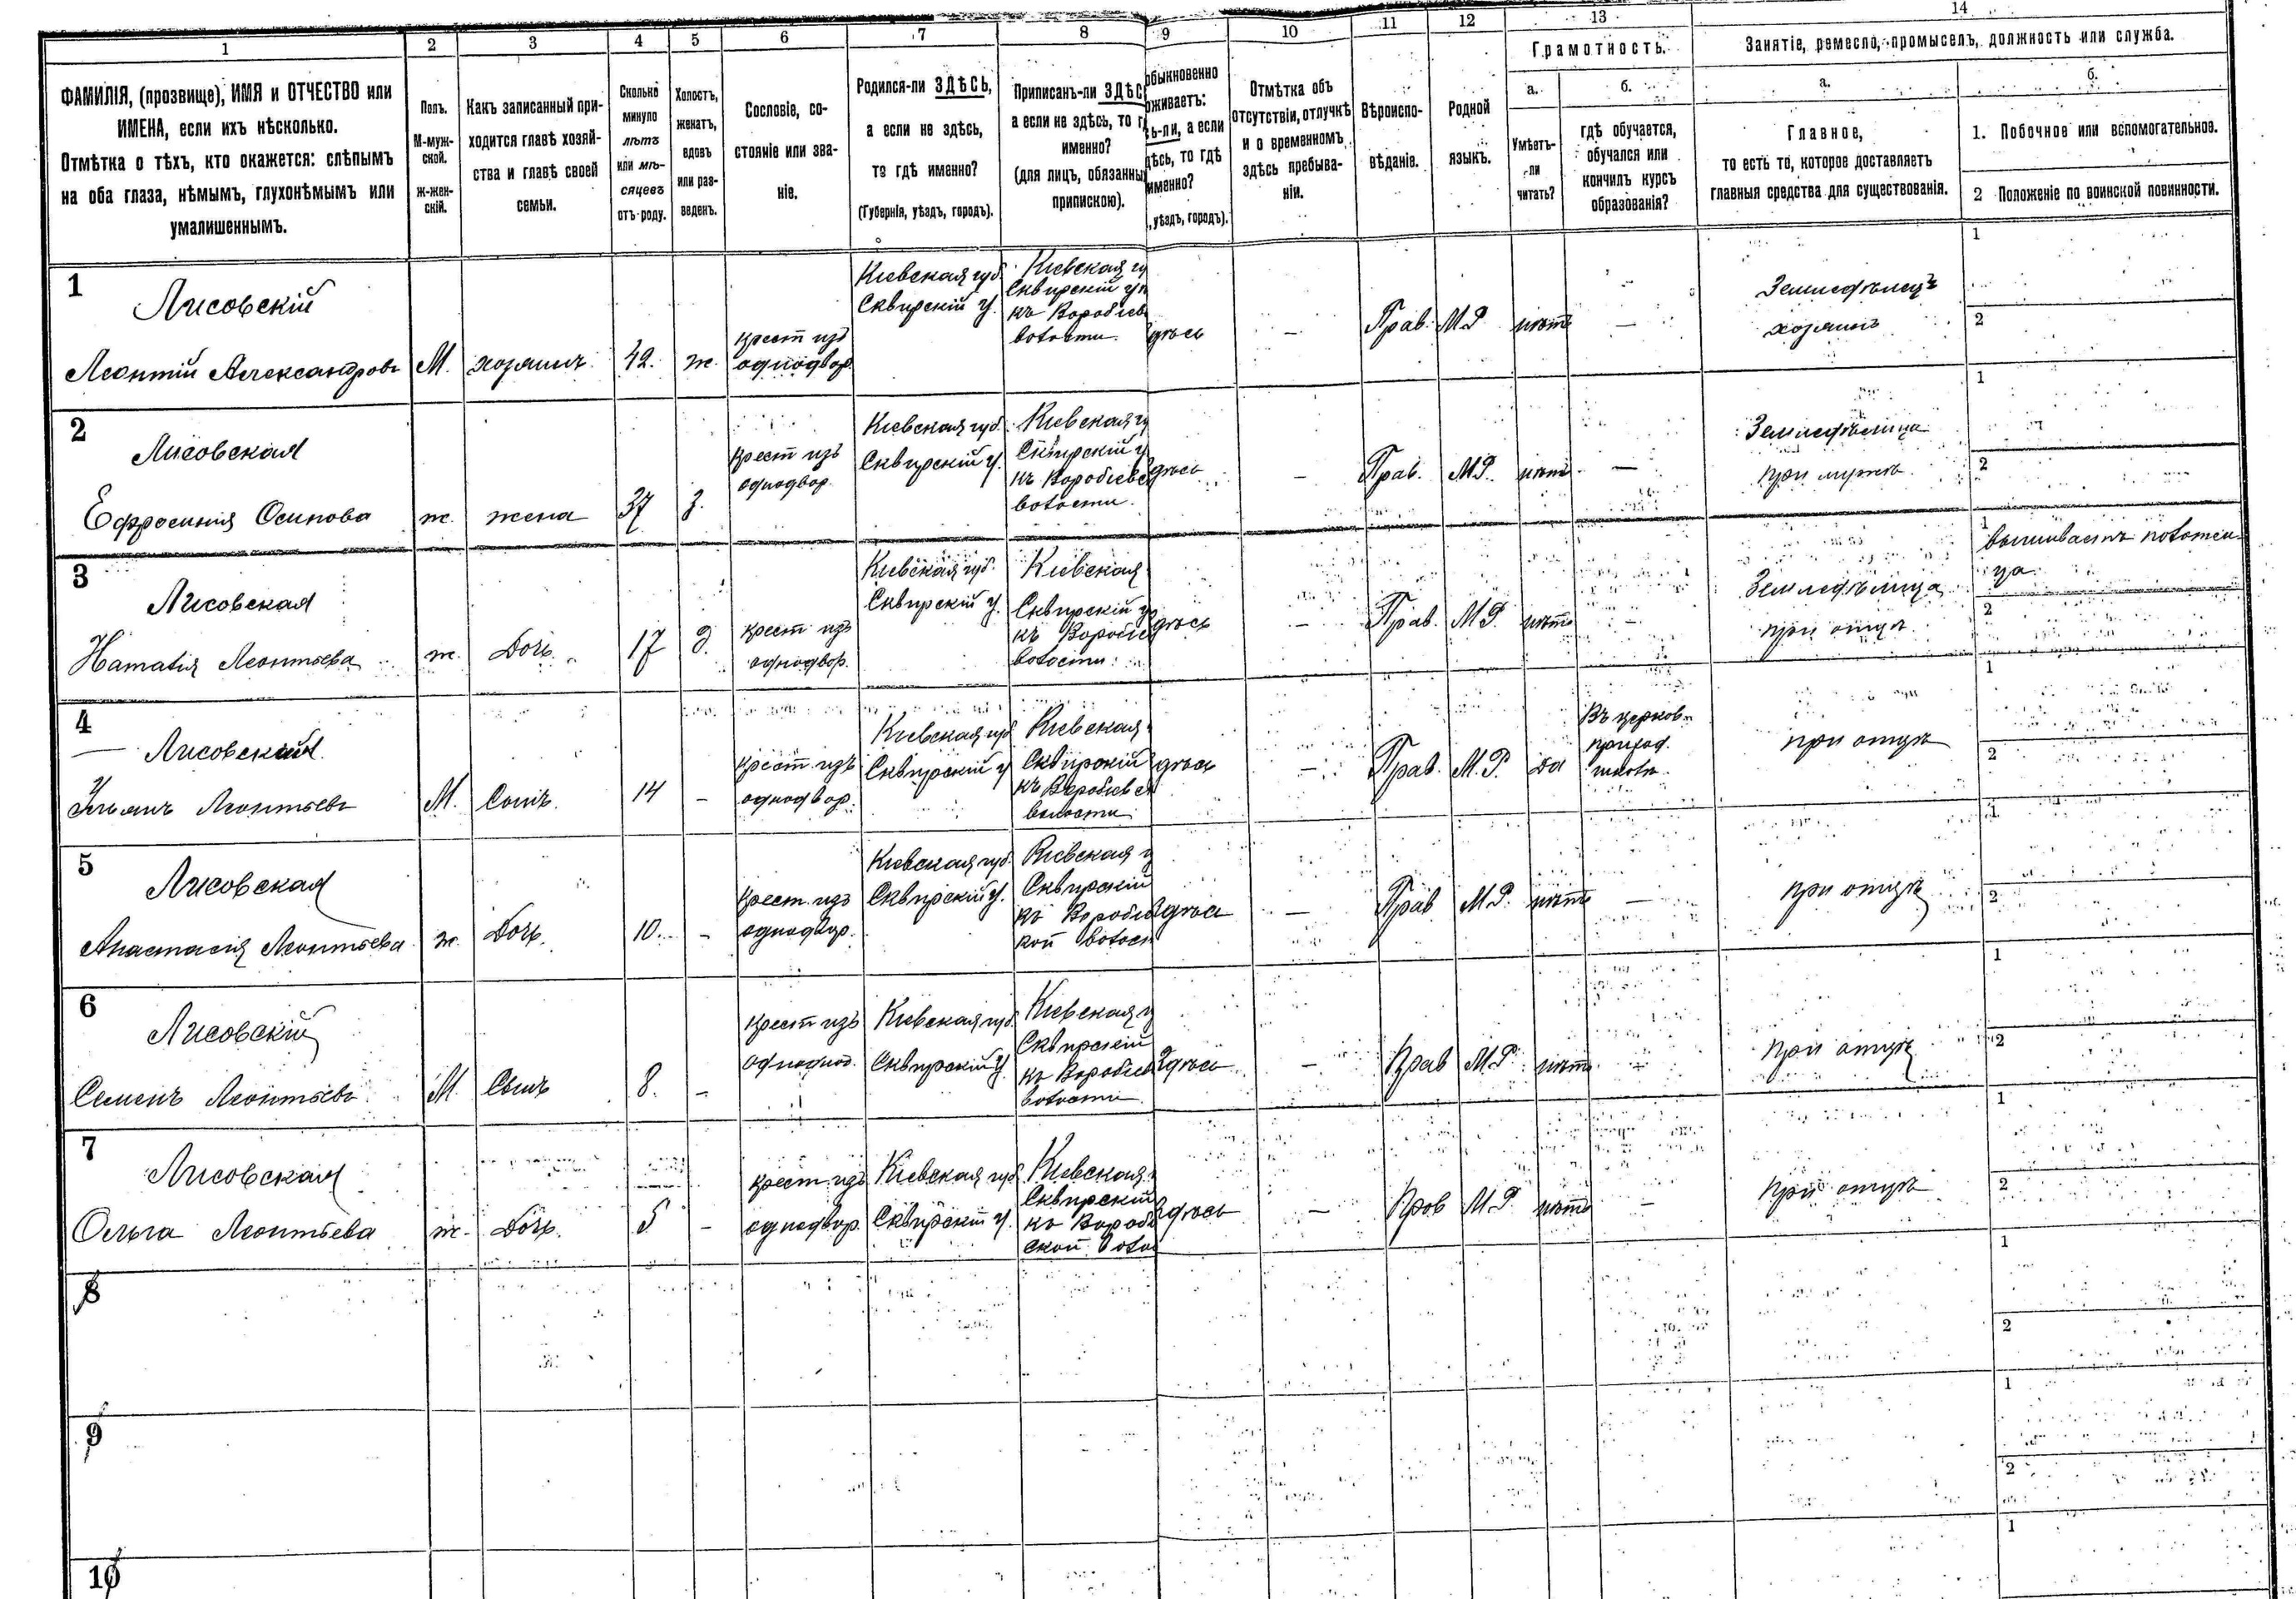 1 2 3 4 5 6 7 8 9 10 11 12 13 14
ФАМИЛІЯ, (прозвище), ИМЯ и ОТЧЕСТВО или
ИМЕНА, если ихъ нѣсколько.
Отмѣтка о тѣхъ, кто окажется: слѣпымъ
на оба глаза, нѣмымъ, глухонѣмымъ или
умалишеннымъ.
Полъ.
М-муж-
ской.
ж-жен-
скій.
Какъ записанный при-
ходится главѣ хозяй-
ства и главѣ своей
семьи.
Сколько
минуло
лѣтъ
или мѣ-
сяцевъ
отъ-роду.
Холостъ,
женатъ,
вдовъ
или раз-
веденъ.
Сословіе, со-
стояніе или зва-
ніе.
Родился-ли ЗДѢСЬ,
а если не здѣсь,
то гдѣ именно?
(Губернія, уѣздъ, городъ).
Приписанъ-ли ЗДѢС
а если не здѣсь, то г
именно?
(для лицъ, обязанны
припискою).
обыкновенно
оживаетъ:
сь-ли, а если
дѣсь, то гдѣ
именно?
, уѣздъ, городъ).
Отмѣтка объ
отсутствіи, отлучкѣ
и о временномъ
здѣсь пребыва-
ніи.
Вѣроиспо-
вѣданіе.
Родной
языкъ.
Грамотность.
а.
Умѣетъ-
-ли
читать?
б.
гдѣ обучается,
обучался или
кончилъ курсъ
образованія?
Занятіе, ремесло, промыселъ, должность или служба.
а.
Главное,
то есть то, которое доставляетъ
главныя средства для существованія.
б.
1. Побочное или вспомогательное.
2 Положеніе по воинской повинности.
1
Лисовскій
Леонтій Александровъ
М.
хозяинъ.
42.
ж.
крест изъ
однодвор.
Кіевская губ.
Сквирскій у.
Кіевская гу
Сквирскій у
къ Воробіев
волости.
здѣсь
—
Прав.
М Р
нѣтъ
—
Земледѣлецъ
хозяинъ
1
2
2
Лисовская
Ефросинія Осипова
ж.
жена
37
з.
крест изъ
однодвор.
Кіевская губ.
Сквирскій у.
Кіевская гу
Сквирскій у
къ Воробіевс
волости.
здѣсь
—
Прав.
М Р.
нѣтъ
—
Земледѣлица
при мужѣ.
1
2
3
Лисовская
Наталія Леонтьева
ж.
Дочь.
17
д.
крест изъ
однодвор.
Кіевская губ.
Сквирскій у.
Кіевская
Сквирскій у
къ Воробіе
волости.
здѣсь
—
Прав.
М Р.
нѣтъ
—
Земледѣлица
при отцѣ.
1
вышиваетъ полотен-
ца.
2
4
— Лисовскій
Ульянъ Леонтьевъ
М.
Сынъ.
14
—
крест изъ
однодвор.
Кіевская губ
Сквирскій у
Кіевская
Сквирскій
къ Воробіевск
волости
здѣсь
—
Прав.
М. Р.
да
Въ церков-
приход.
школѣ.
при отцѣ
1
2
5
Лисовская
Анастасія Леонтьева
ж.
Дочь.
10.
—
крест. изъ
однодвор.
Кіевская губ.
Сквирскій у.
Кіевская г
Сквирскій
къ Воробіев
кой волост
здѣсь
—
Прав
М Р.
нѣтъ
—
при отцѣ
1
2
6
Лисовскій
Семенъ Леонтьевъ
М.
Сынъ
8.
—
крест изъ
Кіевская губ.
Сквирскій у.
Кіевская г
Сквирскій
къ Воробіев
волости
здѣсь
—
Прав
М Р.
нѣтъ
—
при отцѣ
1
2
7
Лисовская
Ольга Леонтьева
ж.
Дочь.
5
—
крест. изъ
однодвор.
Кіевская губ
Сквирскій у.
Кіевская
Сквирскій
къ Вороб
ской воло
здѣсь
—
Прав
М Р
нѣтъ
—
При отцѣ
1
2
8
1
2
9
1
2
10
1